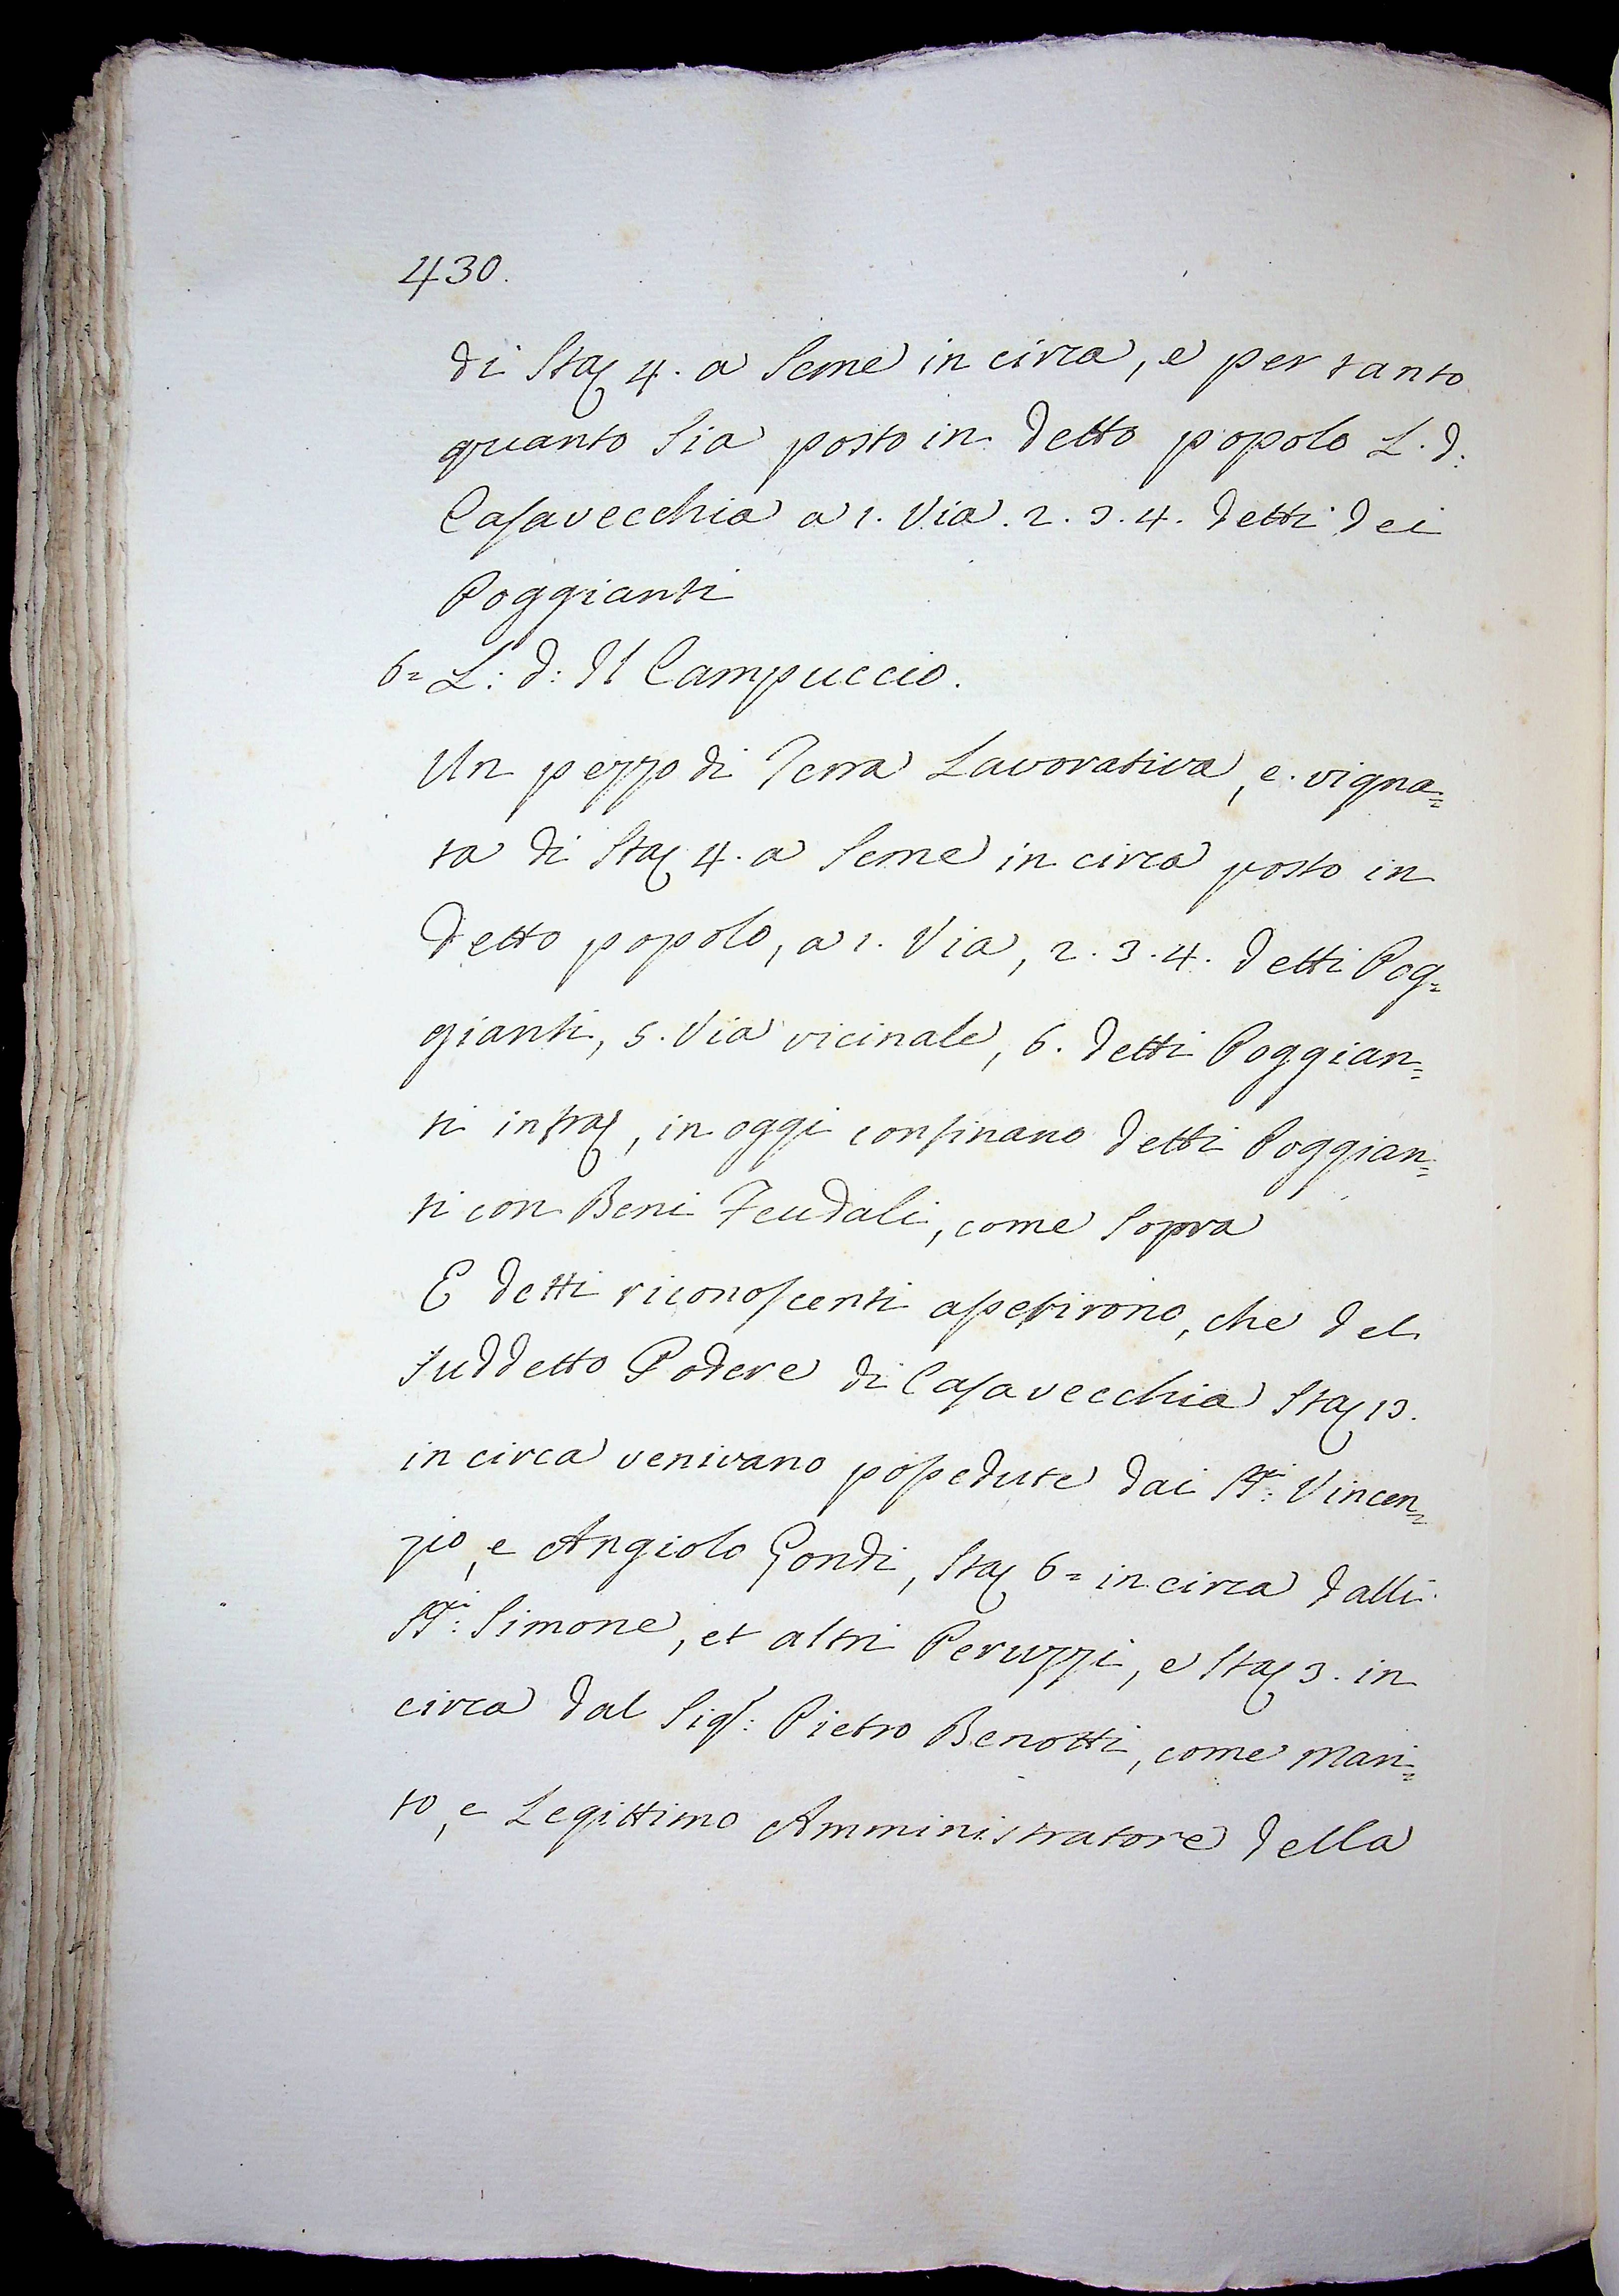 430.
di Staj 4. a Seme in circa, e per tanto
quanto Sia posto in detto popolo L. d:
Casavecchia a 1. Via. 2. 3. 4. detti dei
Poggianti
6= L: d: Il Campuccio.
Un pezzo di Terra Lavorativa, e vigna=
ta di Staj 4. a Seme in circa posto in
detto popolo, a 1. Via, 2. 3. 4. detti Pog=
gianti, 5. Via vicinale, 6. detti Poggian=
ti infraj, in oggi confinano detti Poggian=
ti con Beni Feudali, come Sopra
E detti riconoscenti asserirono, che del
Suddetto Podere di Casavecchia Staj 13.
in circa venivano possedute dai SS:ri Vincen=
zio, e Angiolo Gondi, Staj 6= in circa dalli
SS:ri Simone, et altri Peruzzi, e Staj 3. in
circa dal Sigr: Pietro Benotti, come Mari=
to, e Legittimo Amministratore della